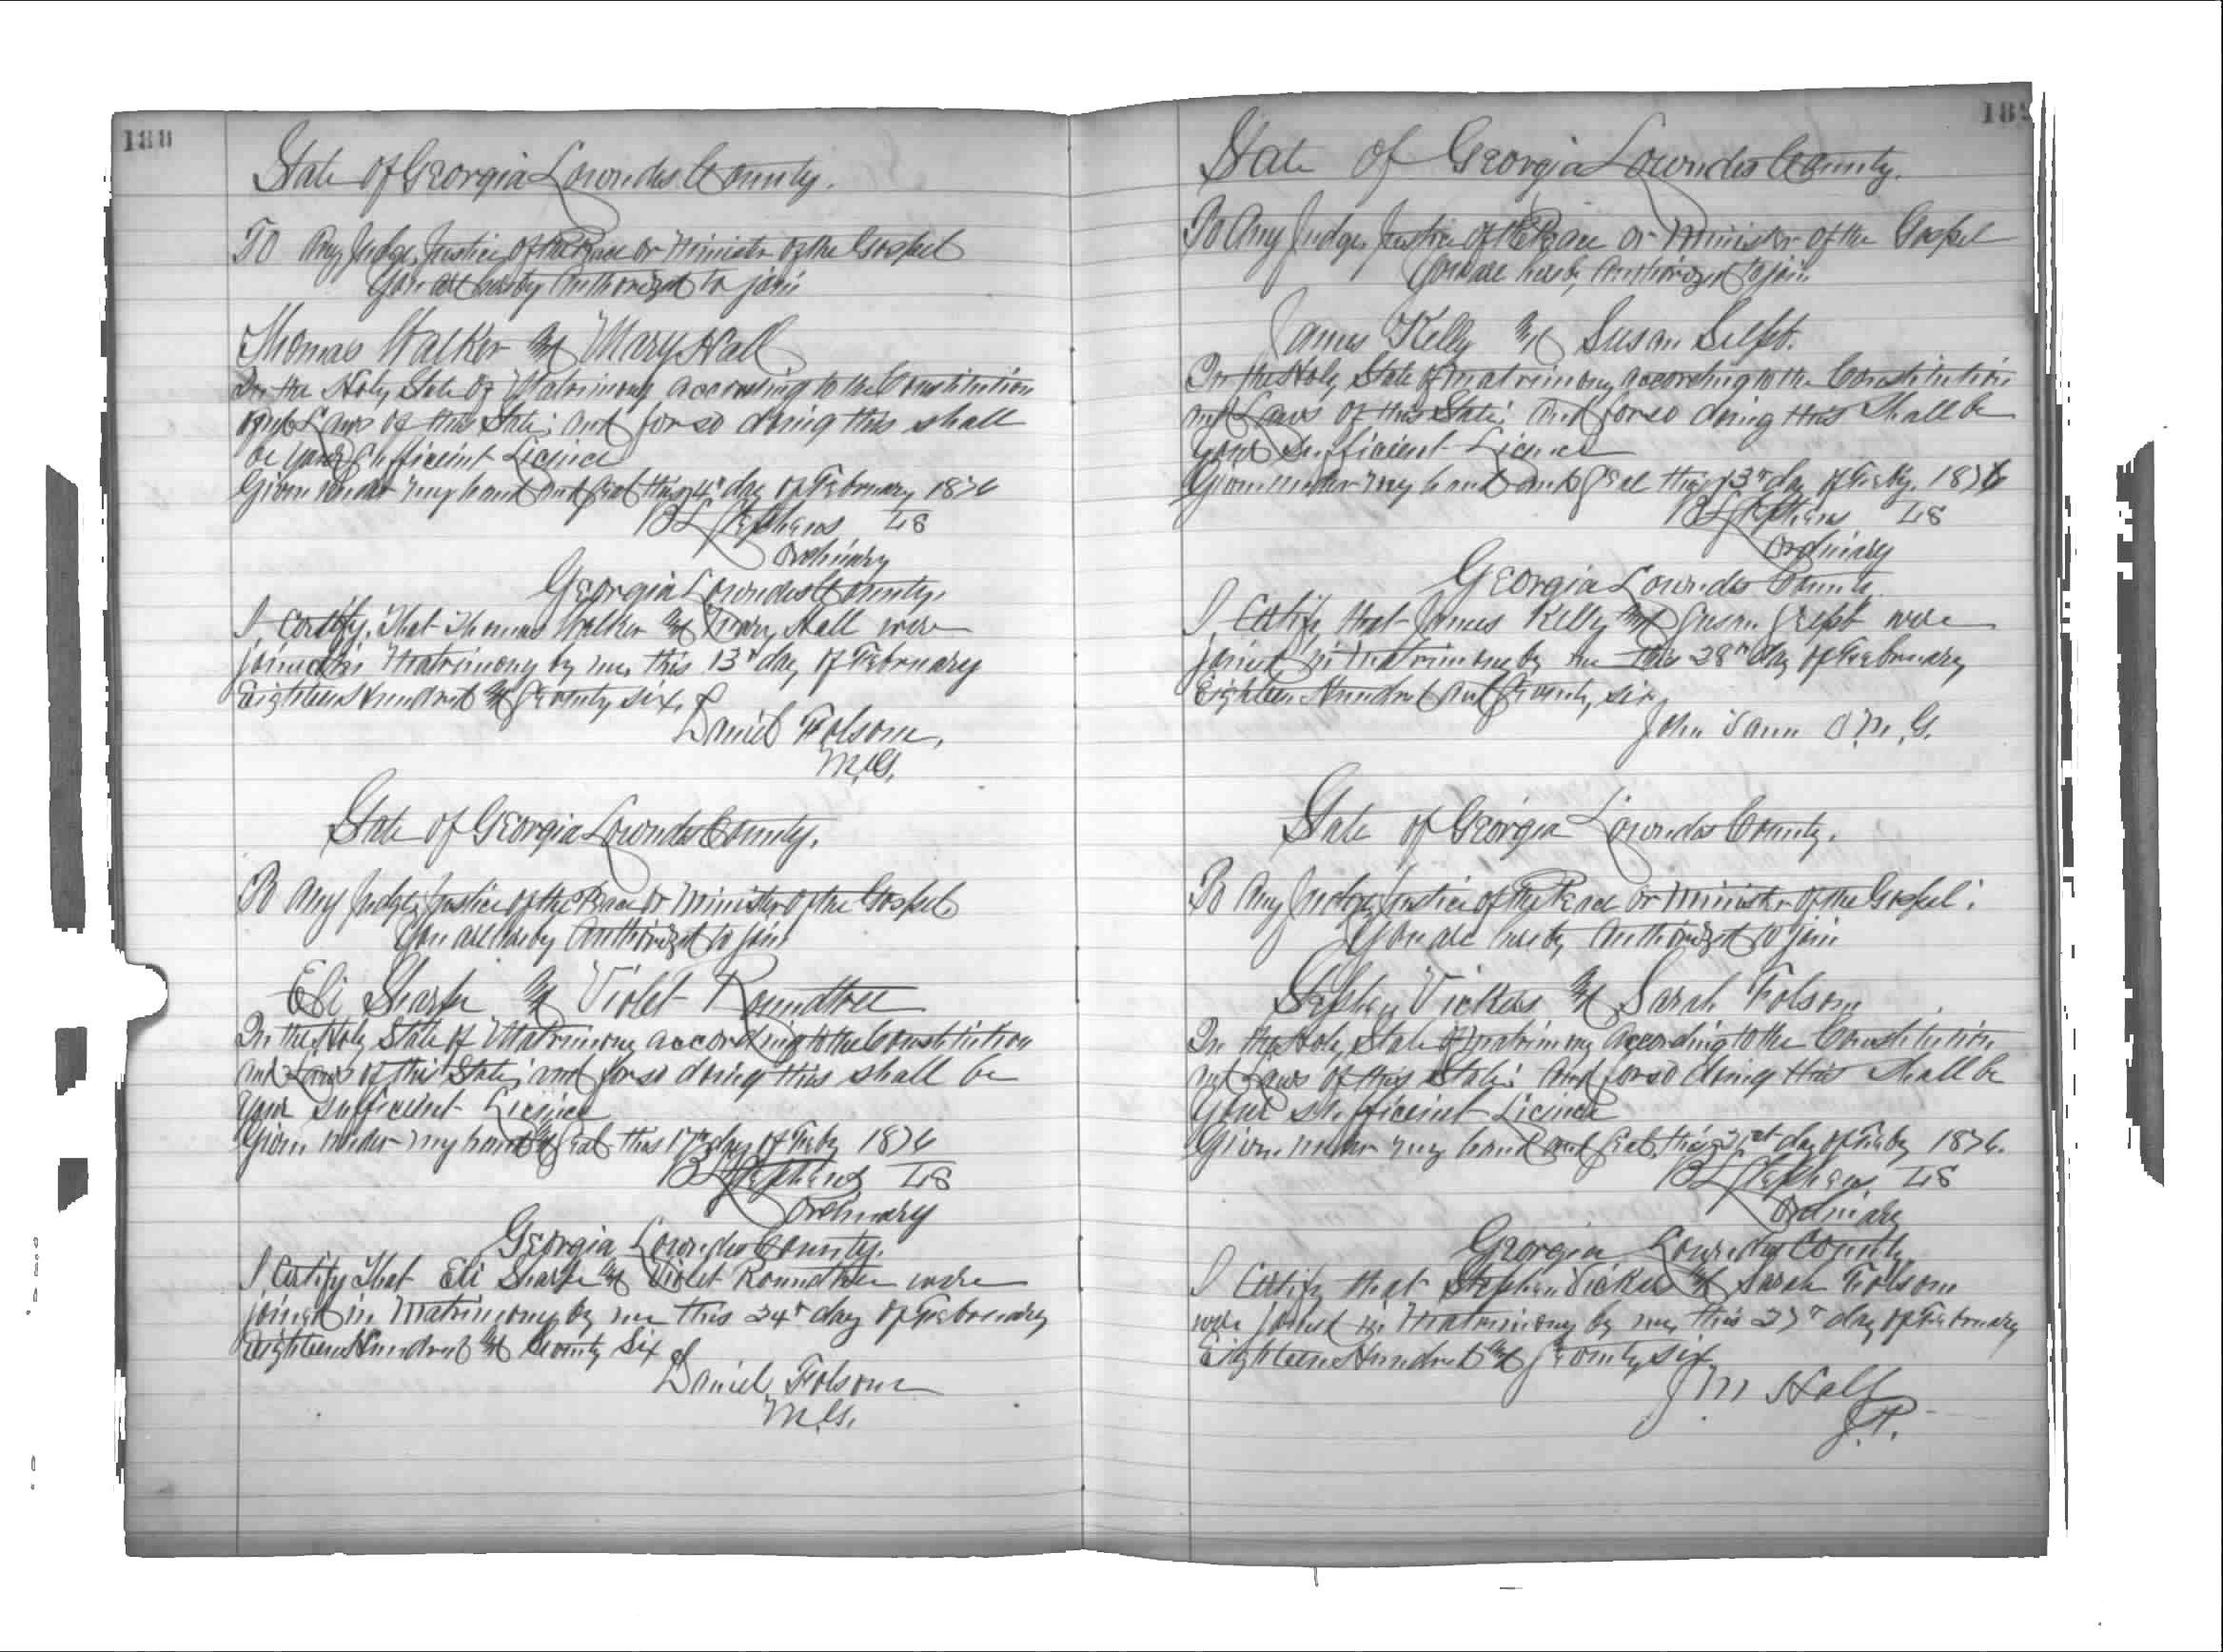 188
State of Georgia Lowndes County.
To Any Judge, Justice of the Peace or Minister of the Gospel
You are hereby Authorized to join
Thomas Walker And Mary Hall
In the Holy State of Matrimony according to the Constitution
and Laws of this State; and for so doing this shall
be your Sufficient Licence
Given under my hand and Seal this day of February 1876
B L Stephens LS
Ordinary
Georgia Lowndes County.
I Certify, That Thomas Walker And Mary Hall were
joined in Matrimony by me, this 13th day of February
Eighteen Hundred And Seventy six.
Daniel Folsom,
M.G.
State of Georgia Lowndes County.
To Any Judge, Justice of the Peace or Minister of the Gospel.
You are hereby Authorized to join
Eli Sharpe And Violet Roundtree
In the Holy State of Matrimony according to the Constitution
and Laws of this State; and for so doing this shall be
your sufficient Licence
Given under my hand & Seal this 17th day of Feby 1876
B L Stephens LS
Ordinary
Georgia Lowndes County.
I Certify That Eli Sharpe And Violet Roundtree were
joined in Matrimony by me this 24th day of February
Eighteen Hundred And Seventy Six
Daniel Folsom
M.G.
State of Georgia Lowndes County.
To Any Judge, Justice of the Peace or Minister of the Gospel
You are hereby Authorized to join
James Kelly And Susan
In the Holy State of Matrimony according to the Constitution
and Laws of this State: And for so doing this Shall be
your Sufficient Licence
Given under my hand and Seal this day of Feby. 1876
B L Stephens LS
Ordinary
Georgia Lowndes County.
I Certify that James Kelly And Susan were
joined in Matrimony by me this 28th day of February
Eighteen Hundred and Seventy six,
John M. G.
State of Georgia Lowndes County.
To Any Judge, Justice of the Peace or Minister of the Gospel:
You are hereby Authorized to join
Stephen Vickers And Sarah Folsom
In the Holy State of Matrimony According to the Constitution
and Laws of this State: And for so doing this Shall be
Your Sufficient Licence
Given under my hand and Seal, this 21st day of Feby 1876.
B L Stephens LS
Ordinary
Georgia Lowndes County
I Certify that Stephen Vickers And Sarah Folsom
were Joined in Matrimony by me, this 27th day of February
Eighteen Hundred And Seventy six
J M Hall
J.P.